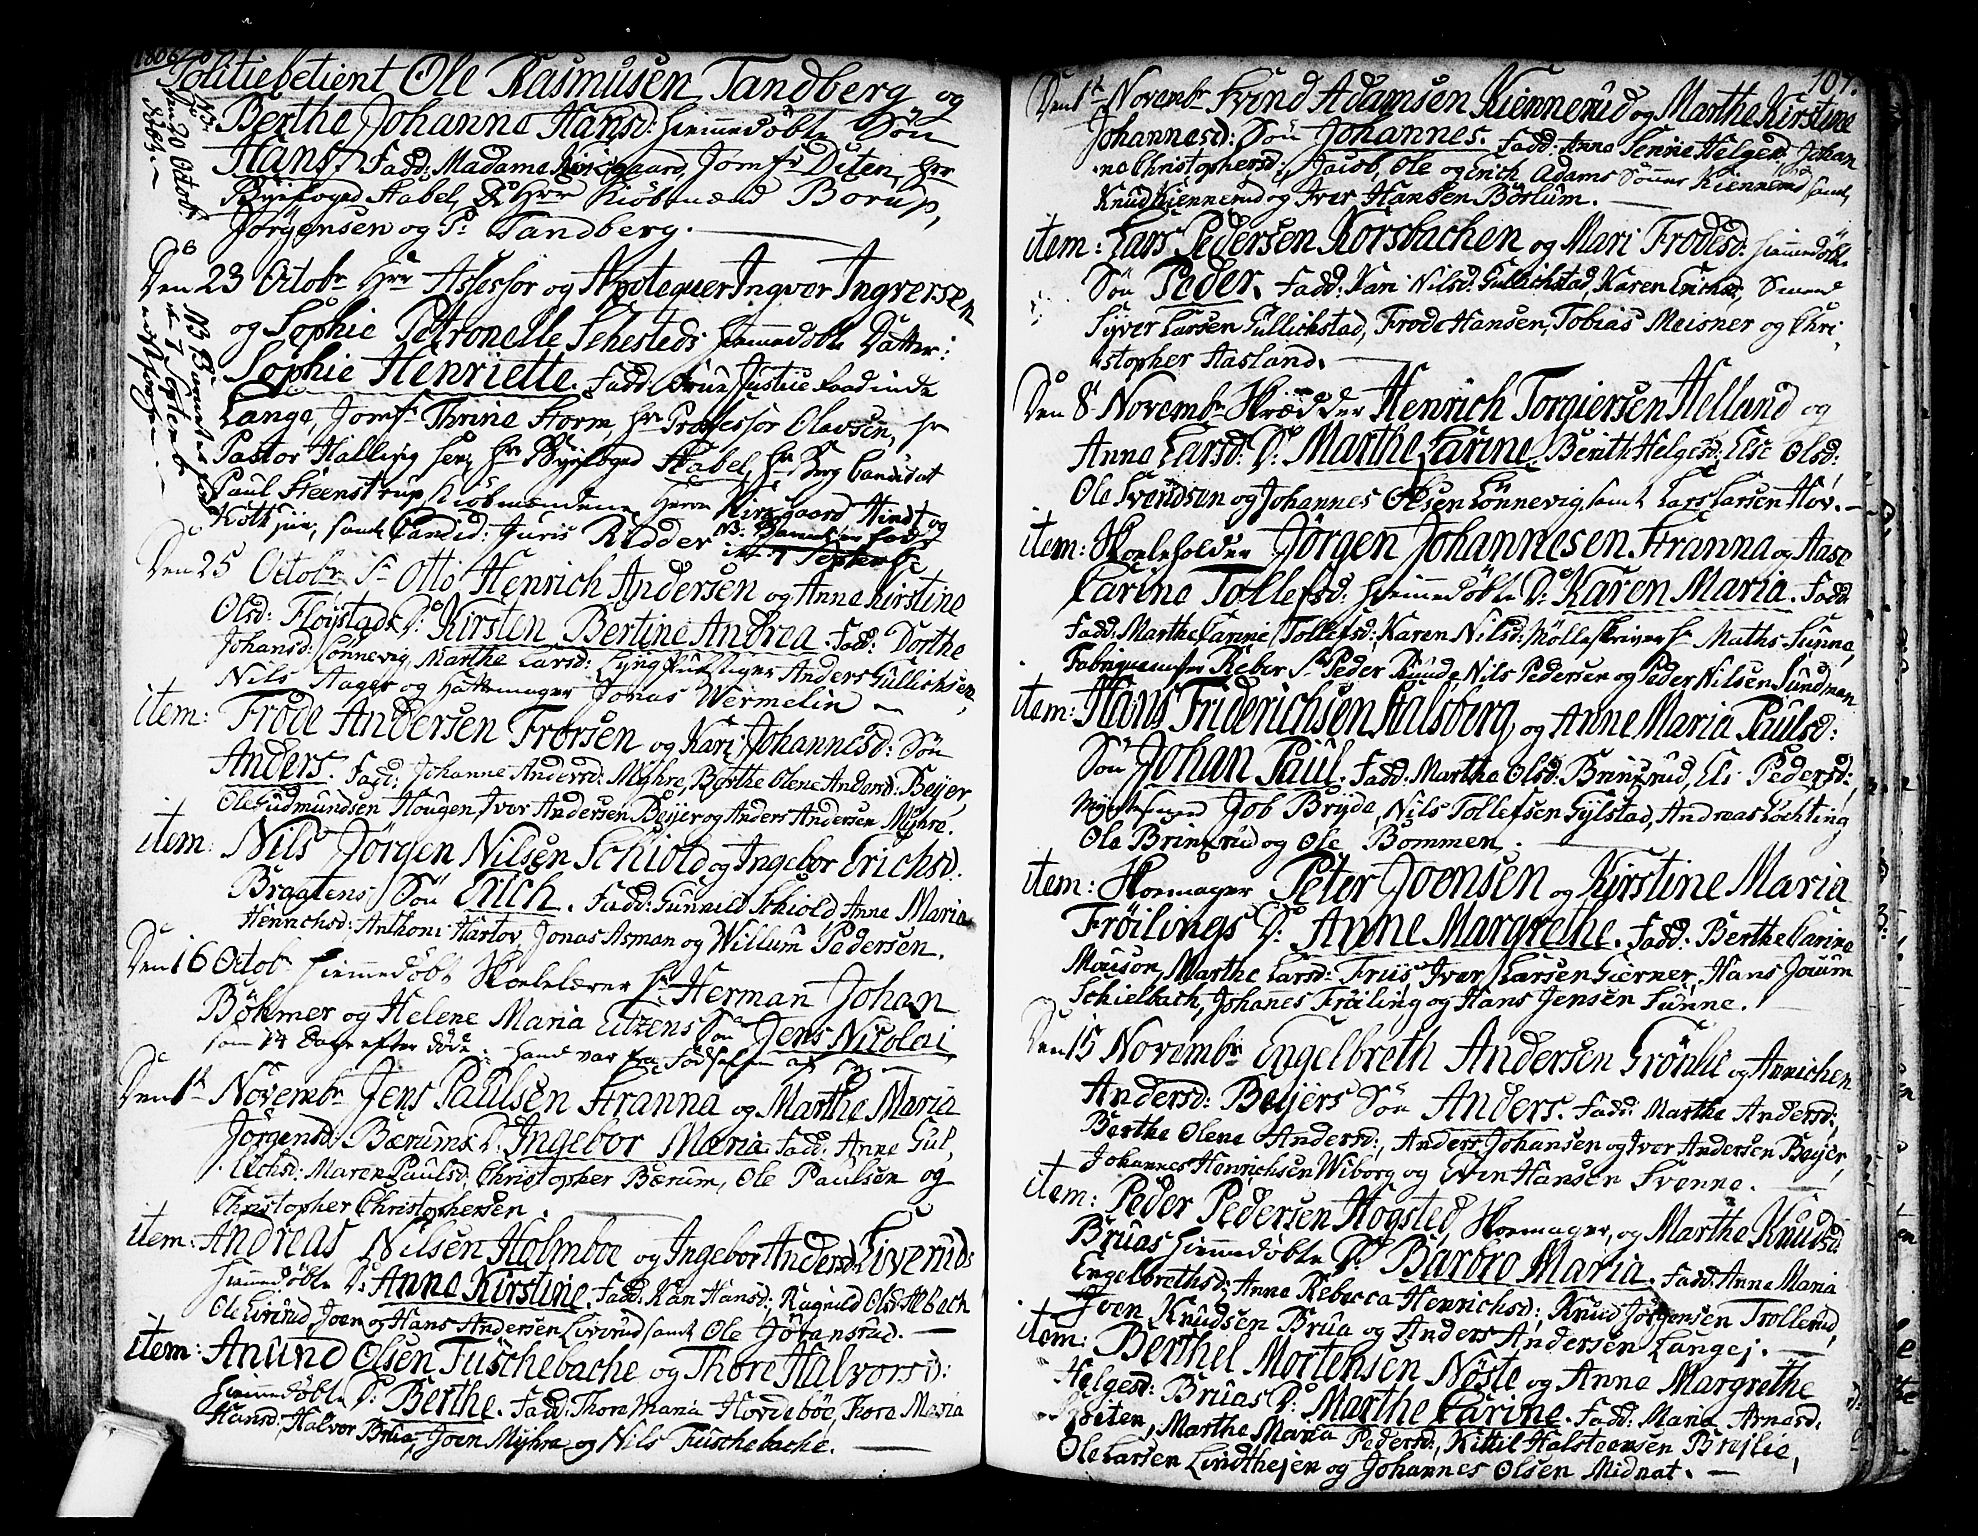 Politiebetient Ole Rasmusen Tandberg og
Berthe Johanne Hansd: hiemmedøbte Søn
Hans. Fadd: Madame Kirkgaard, Jomfr Diten, Hrr
Byefoged Habel, Hrr Kiøbmænd Borup,
Jörgensen og P: Tandberg.
NB.
20 Octobr
1806.
Den 23 Octobr Hrr Assessor og Apoteqver Ingver Ingversen
og Sophie Petronelle Sehesteds hiemmedøbte Datter:
Sophie Henriette. Fadd: Frue Justice Raadinde
Lange, Jomfr Thrine Storm, Hr Professor Olavsen, Hr
Pastor Halling sen, Hr Byefoged Habel, Hr Berg Candidat
Paul Steenstrup, Kiøbmændene Herrer Kirkgaard Hindt og
samt Candid: Juris Ridder NB. Barnet er født
den 7 Septembr
NB Barnet er født
d: 7 Septembr
Den 25 Octobr Sr Otto Henrich Andersen og Anne Kirstine
Olsd: Fløystads Dr Kirsten Bertine Andrea. Fadd: Dorthe
Johansd: Lønnevig, Marthe Larsd: Lyng, Anders Gullichsen,
Nils Aager og Hattemager Jonas Wermelin
item: Frode Andersen Frorsen og Kari Johannesd: Søn
Anders. Fadd: Johanne Andersd: Myhre, Berthe Olene Andersd: Beyer,
Ole Gudmundsen Hougen, Iver Andersen Beyer og Anders Andersen Myhre.
item: Nils Jörgen Nilsen Schiold og Ingebor Erichsd:
Braatens Søn Erich. Fadd: Gunnild Schiold Anne Maria
Henrichsd: Anthoni Hartov, Jonas Asman og Willum Pedersen.
Den 16 Octobr hiemmedøbt Skoelelærer Hr Herman Johan
Bøhmer og Helene Maria Eitzens Søn Jens Nicolai
som 14 Dage efter døde. Hand var fra Fødselen af
Den 1st Novembr Jens Paulsen Stranna og Marthe Maria
Jörgensd: Bærums Dr Ingebor Maria. Fadd: Anne Gul,
lichsd: Maren Paulsd, Christopher Bærum, Ole Paulsen og
Christopher Christophersen
item: Andreas Nilsen Holmboe og Ingebor Andersd: Liveruds
hiemmedøbte Dr: Anne Kirstine. Fadd: Kari Hansd: Ragnild Olsd: Albach
Ole Liverud Joen og Hans Andersen Liverud, samt Ole Jöransrud.
item: Anund Olsen Tuschebache og Thore Halvorsd:
hiemmedøbte Dr: Berthe. Fadd: Thore Maria Hovdebøe, Thore Maria
Hansd, Halvor Brua, Joen Myhre og Nils Tuschebache.
107.
Den 1st Novembr Svend Adamsen Kiennerud og Marthe Kirstine
Johannesd: Søn Johannes. Fadd: Anne Lenne Helged: Johan
ne Christophersd: Jacob, Ole og Erich Adams Sønner Kiennerud samt
Knud Kiennerud og Iver Hansen Börlum.
item: Lars Pedersen Korsbachen og Mari Frodesd: hiemmedøbte
Søn Peder. Fadd: Kari Nilsd: Gullichstad, Karen Erichsd, Smed
Syver Larsen Gullichstad, Frode Hansen, Tobias Meisner og Chri
stopher Aasland.
Den 8 Novembr Skrædder Henrich Torgiersen Helland og
Anne Larsd: Dr: Marthe Carine. Berith Helgesd: Else Olsd:
Ole Svendsen og Johannes Olsen Lönnevig, samt Lars Larsen Hov.
item: Skoeleholder Jörgen Johannesen Stranna og Aase
Carine Tollefsd: hiemmedøbte Dr: Karen Maria. Fadd:
Fadd: Marthe Carine Tollefsd: Karen Nilsd: Mölleskriver Hr Maths Sunna,
Fabriquemester Reber Sr Peder Runde, Nils Pedersen og Peder Nilsen Sundman
item: Hans Friderichsen Aalsberg, og Anne Maria Paulsd:
Søn Johan Paul. Fadd: Marthe Olsd: Bringrud, Els Pedersd:
Myntesmed Job Bryde, Nils Tollefsen Gylstad, Andreas Löchting
Ole Bringrud og Ole Bommen.
item: Skoemager Peter Joensen og Kirstine Maria
Fröilings Dr: Anne Margrethe. Fadd: Berthe Carine
Mouson, Marthe Larsd: Friis, Iver Larsen Gierner, Hans Jouum
Schielbach, Johanes Fröiling og Hans Jensen Sunne.
Den 15 Novembr Engelbreth Andersen Grönlie og Annichen
Andersd: Beijers Søn Anders. Fadd: Marthe Andersd:,
Berthe Olene Andersd:, Anders Johansen og Iver Andersen Beijer,
Johannes Henrichsen Wiborg og Even Hansen Svenne.
item: Peder Pedersen Hogsted, Skoemager, og Marthe Knudsd:
Bruas hiemmedøbte Dr: Barbro Maria. Fadd: Anne Maria
Engelbrethsd: Anne Rebecca Henrichsd:, Knud Jörgensen Trollerud,
Joen Knudsen Brua og Anders Andersen Langej.
item: Berthel Mortensen Nöste og Anne Margrethe
Helgesd: Bruas Dr: Marthe Carine. Fadd: Maria Arnesd.
Marthe Maria Pedersd, Kittil Halsteensen Brejlie,
Ole Larsen Lindthejen og Johannes Olsen Midnat.